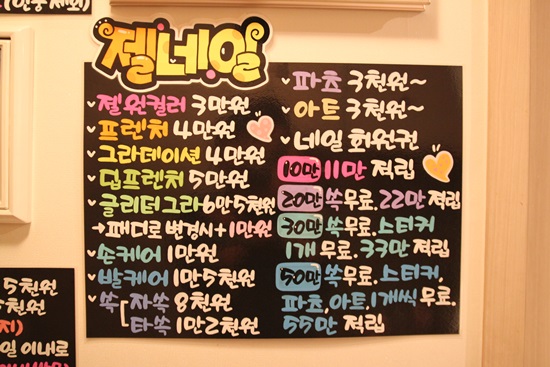 젤네일
젤원컬러 3만원
프렌치 4만원
그라데이션 4만원
딥프렌치 5만원
글리터그라 6만5천원
→패디로 변경시+1만원
손케어 1만원
발케어 1만5천원
쏙[자쏙 8천원
타쏙 1만2천원
파츠 3천원~
아트 3천원~
네일 회원권
10만 11만 적립
20만 쏙무료. 22만 적립
30만 쏙무료. 스티커
1개 무료. 33만 적립
50만 쏙무료. 스티커,
파츠, 아트 1개씩 무료.
55만 적립
5천원
5천원
일 이내로